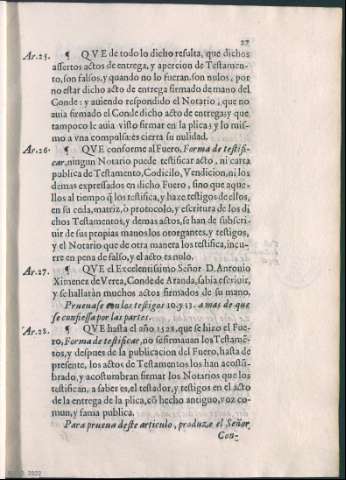 27
Ar.25. ¶ QVE de todo lo dicho resulta, que dichos
assertos actos de entrega, y apercion de Testamen-
to, son falsos, y quando no lo fueran, son nulos, por
no estar dicho acto de entrega firmado de mano del
Conde: y auiendo respondido el Notario, que no
auia firmado el Conde dicho acto de entrega; y que
tampoco le auia visto firmar en la plica; y lo mis-
mo a vna compulsa: es cierta su nulidad.
Ar.26. ¶ QVE conforme al Fuero, Forma de testifi-
car, ningun Notario puede testificar acto, ni carta
publica de Testamento, Codicilo, Vendicion, ni los
demas expressados en dicho Fuero, sino que aque-
llos al tiempo q̃ los testifica, y haze testigos de ellos,
en su ceda, matriz, ò protocolo, y escritura de los di
chos Testamentos, y demas actos, se han de subscri-
uir de sus propias manos los otorgantes, y testigos,
y el Notario que de otra manera los testifica, incu-
rre en pena de falso, y el acto es nulo.
Ar.27. ¶ QVE el Excelentissimo Señor D. Antonio
Ximenez de Vrrea, Conde de Aranda, sabia escriuir,
y se hallaràn muchos actos firmados de su mano.
Prueuase con los testigos 10. y 13. a mas de que
se confiessa por las partes.
Ar.28. ¶ QVE hasta el año 1528. que se hizo el Fue-
ro, Forma de testificar, no se firmauan los Testamẽ-
tos, y despues de la publicacion del Fuero, hasta de
presente, los actos de Testamentos los han acostũ-
brado, y acostumbran firmar los Notarios que los
testifican, a saber es, el testador, y testigos en el acto
de la entrega de la plica, cõ hecho antiguo, voz co-
mun, y fama publica.
Para prueua deste articulo, produze el Señor
Con-